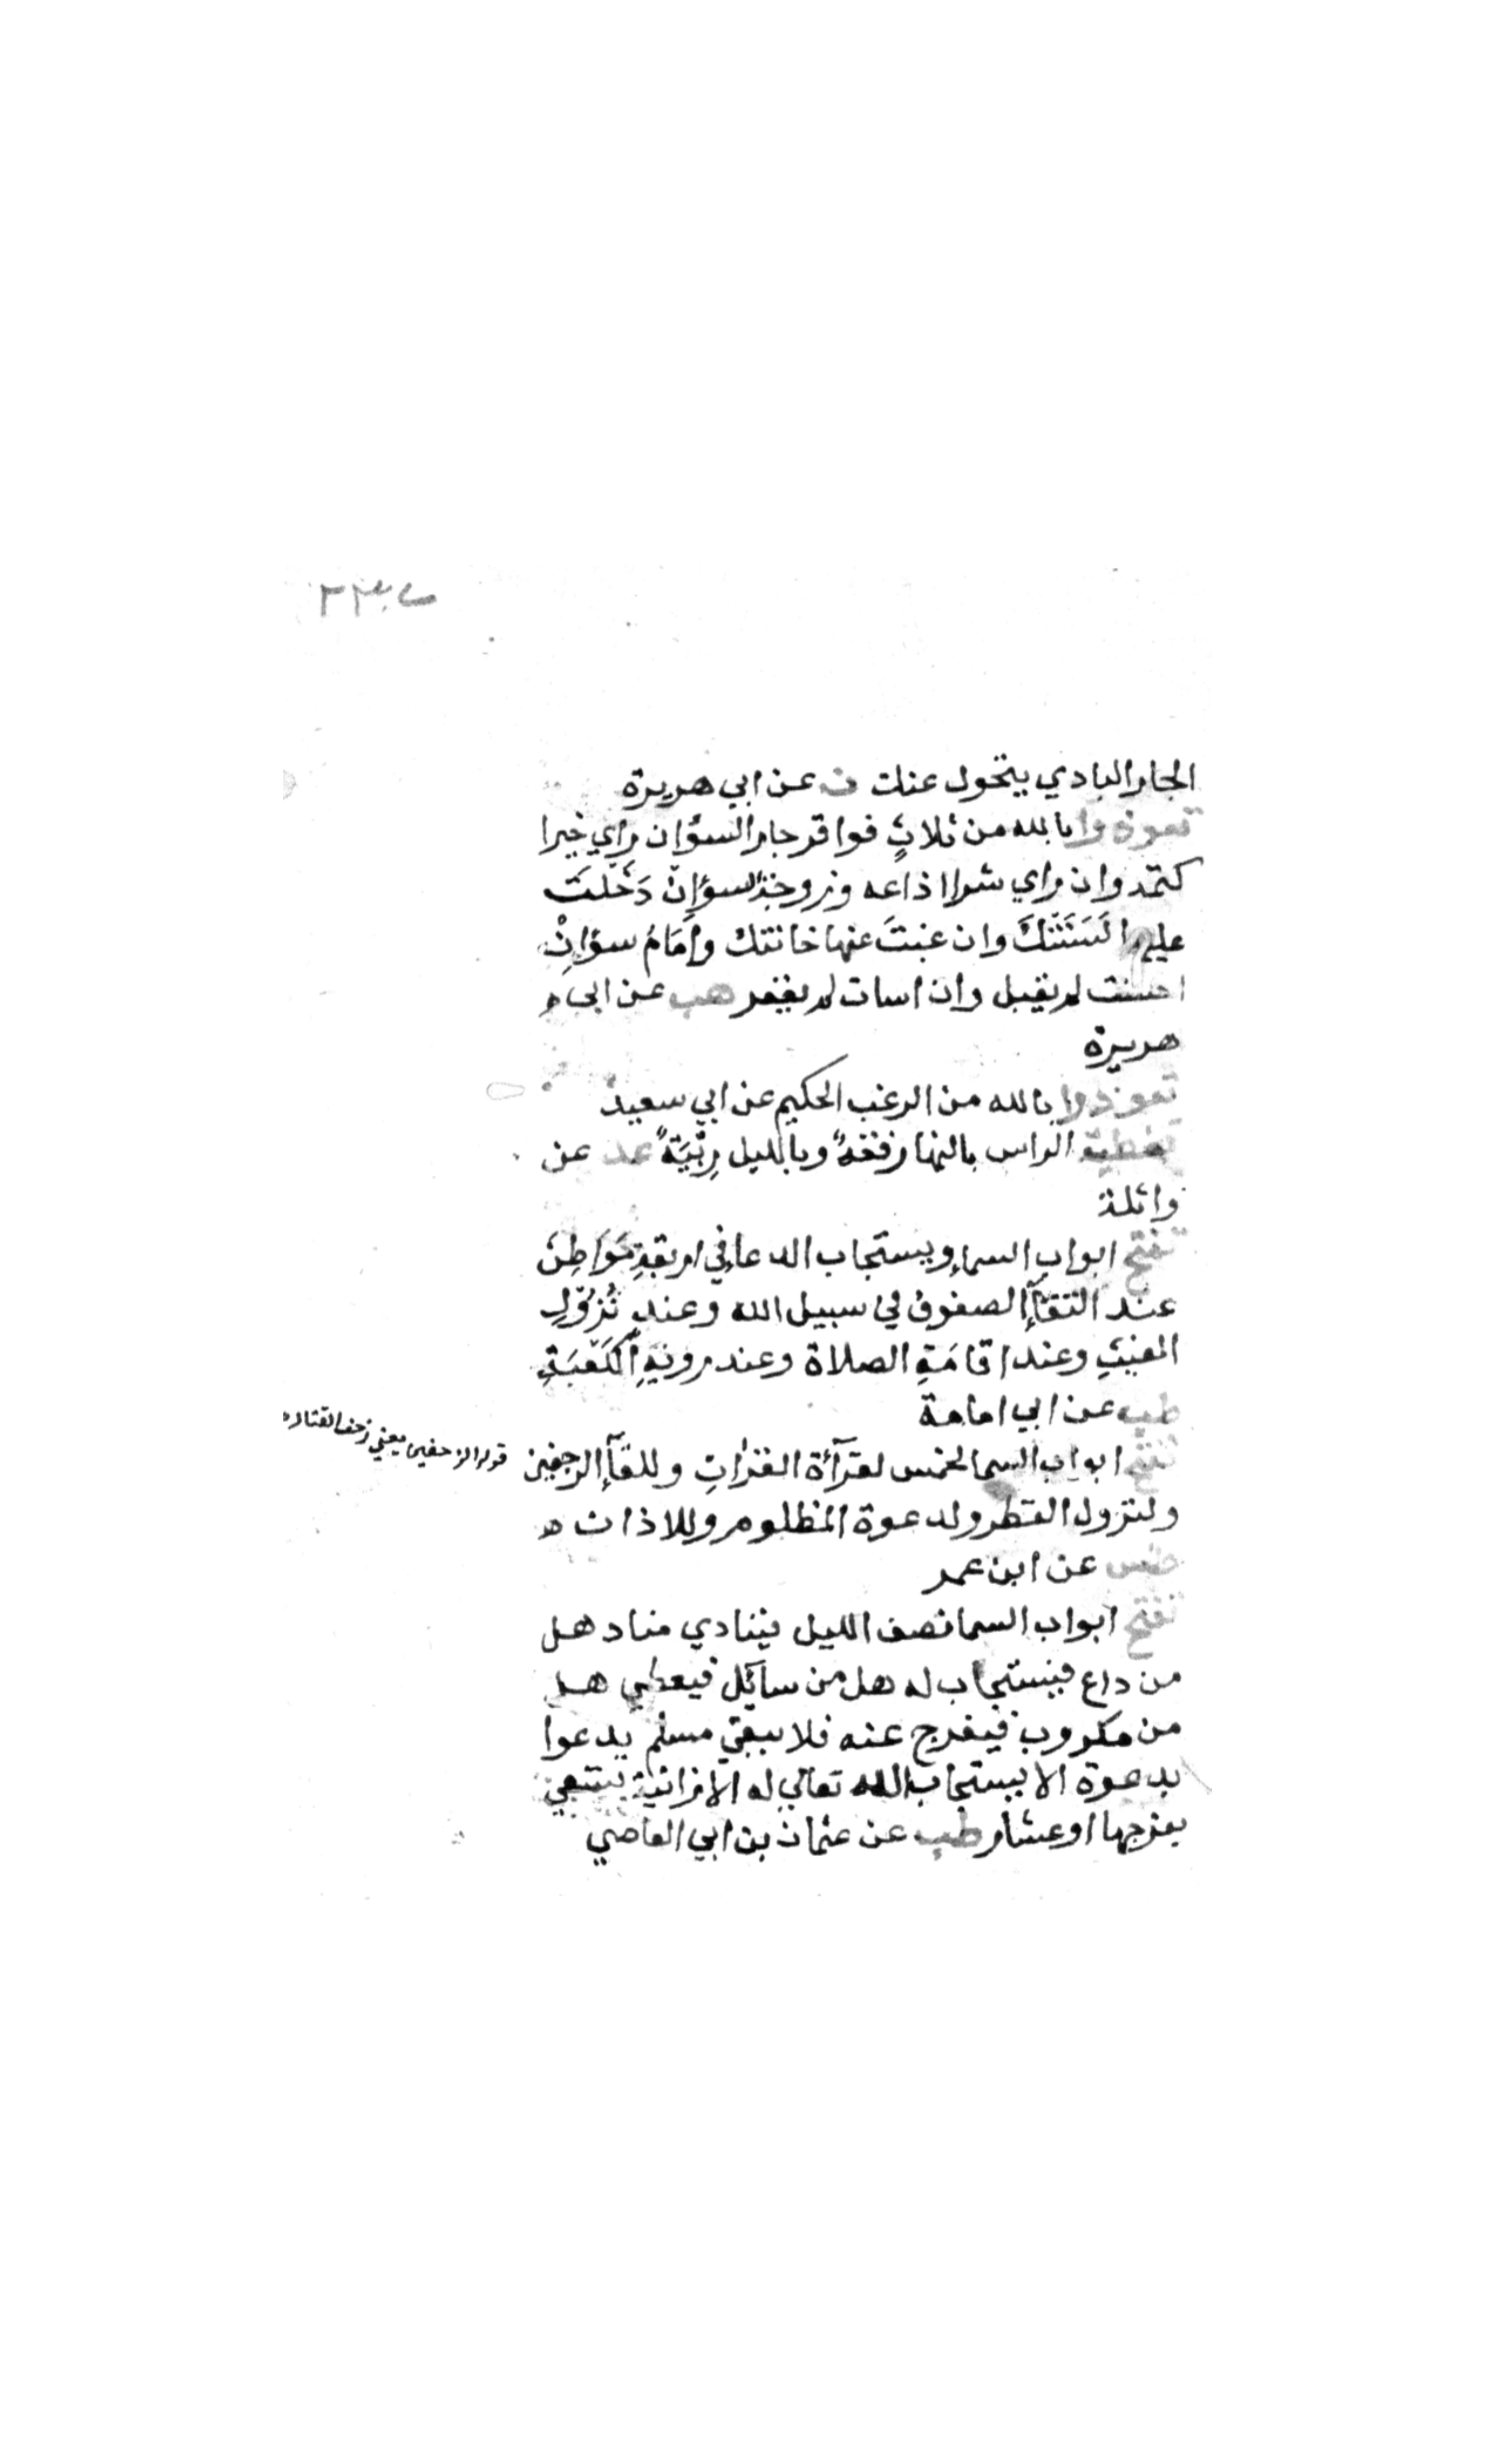 الجار البادي يتحول عنك ن عن ابي هريرة
تعوذوا بالله من ثلاثٍ فواقر جار السوٓان راي خيرا
كتمه وان راي شرا اذاعه وزوجة السوٓانْ دَخَلتَ
عليها لَسَنَتْكَ وان غبتَ عنها خانتك واِمَامُ سوٓاِنْ
احسنت لم يقبل وان اسات لم يغفر هب عن ابي
هريرة
تعوذوا بالله من الرغب الحكيم عن ابي سعيد
تغطية الراس بالنهار فقهٌ وبالليل رِيْبَةٌ عد عن
واثلة
تفتح ابواب السماءِ ويستجاب الدعا في اربعةِ مَوَاطِنَ
عند التقآءِ الصفوف في سبيل الله وعند نُزُوْلِ
الغيثِ وعند اقامَةِ الصلاة وعند رويةِ الكَعْبَةِ
طب عن ابي امامة
تفتح ابواب السما لخمس لقرآءة القران وللقآءِ الزحفين
قوله الزحفين يعني زحف القتال
ولنزول القطر ولدعوة المظلوم وللاذان
طس عن ابن عمر
تفتح ابواب السما نصف الليل فينادي مناد هل
من داع فيستجاب له هل من سآئل فيعطي هل
من مكروب فيفرج عنه فلا يبقي مسلم يدعوا
بدعوة الا يستجاب الله تعالي له الا زانية تسعي
بفرجها او عشار طب عن عثمان بن ابي العاصي